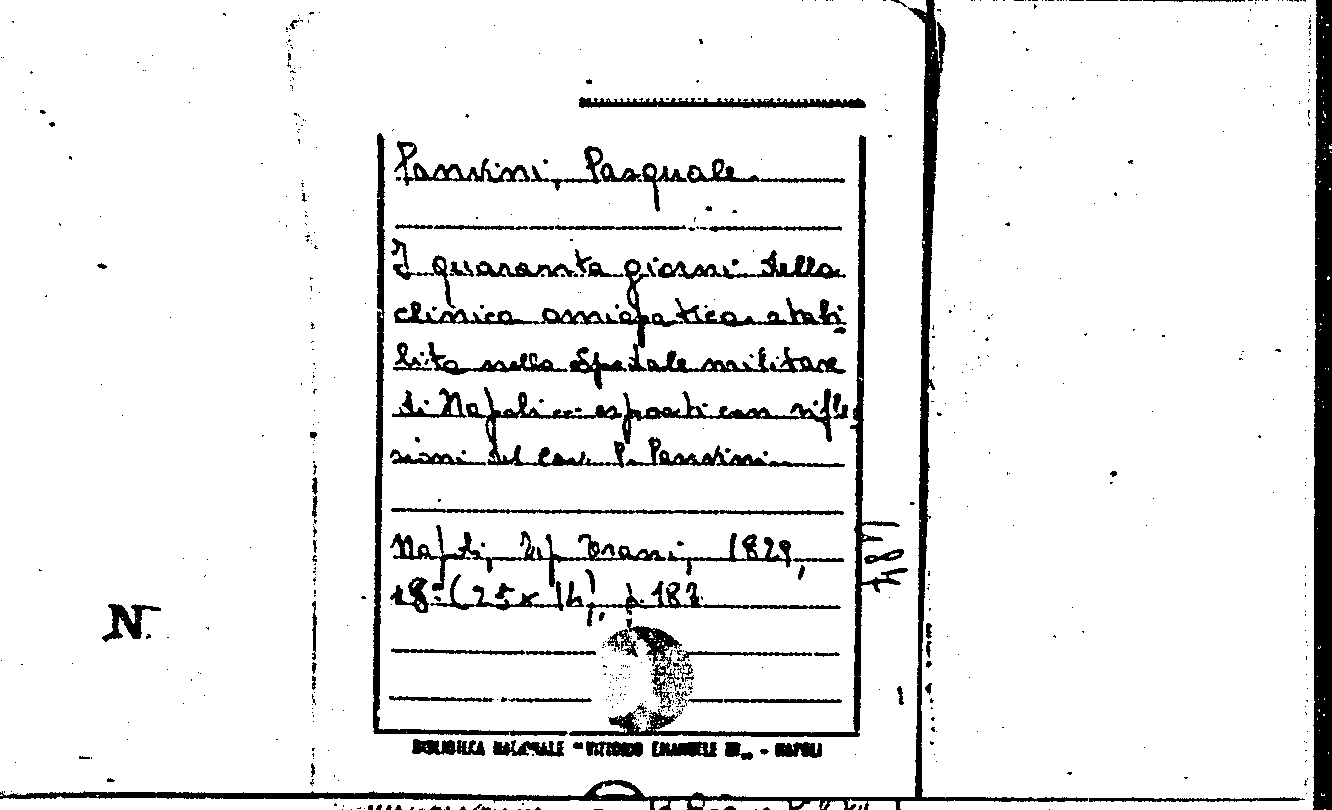 Panvini, Pasquale.
I quaranta giorni della
clinica omiopatica stabi
lita nello Spedale militare
di Napoli --- esposti con rifles
sioni del Cav. P. Panvini.
Napoli, Tip Trani, 1829,
(25 x 16), p. 187
N.
BIBLIOTECA NAZIONALE "VITTORIO EMANUELE III„ - NAPOLI